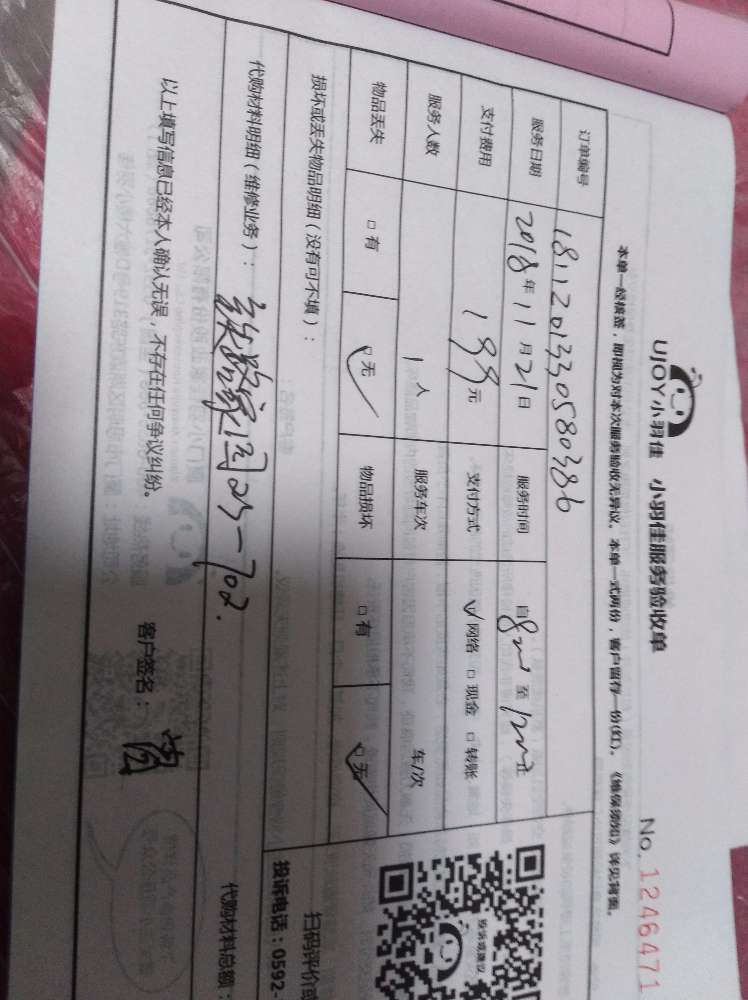 UJOY小羽佳 小羽佳服务验收单
No. 1246471
本单一经核签，即视为对本次服务验收无异议。本单一式两份，客户留存一份(红)。《维保须知》详见背面。
订单编号 181120133058 0386
服务日期 2018年11月21日 服务时间 自8 至12
支付费用 199元 支付方式 ☑网络 □现金 □转账
服务人数 1人 服务车次 车/次
物品丢失 □有 ☑无 物品损坏 □有 ☑无
损坏或丢失物品明细（没有可不填）：
扫码评价或
投诉或建议
投诉电话：0592-
代购材料明细（维修业务）：
25-702.
代购材料总额：
以上填写信息已经本人确认无误，不存在任何争议纠纷。
客户签名：